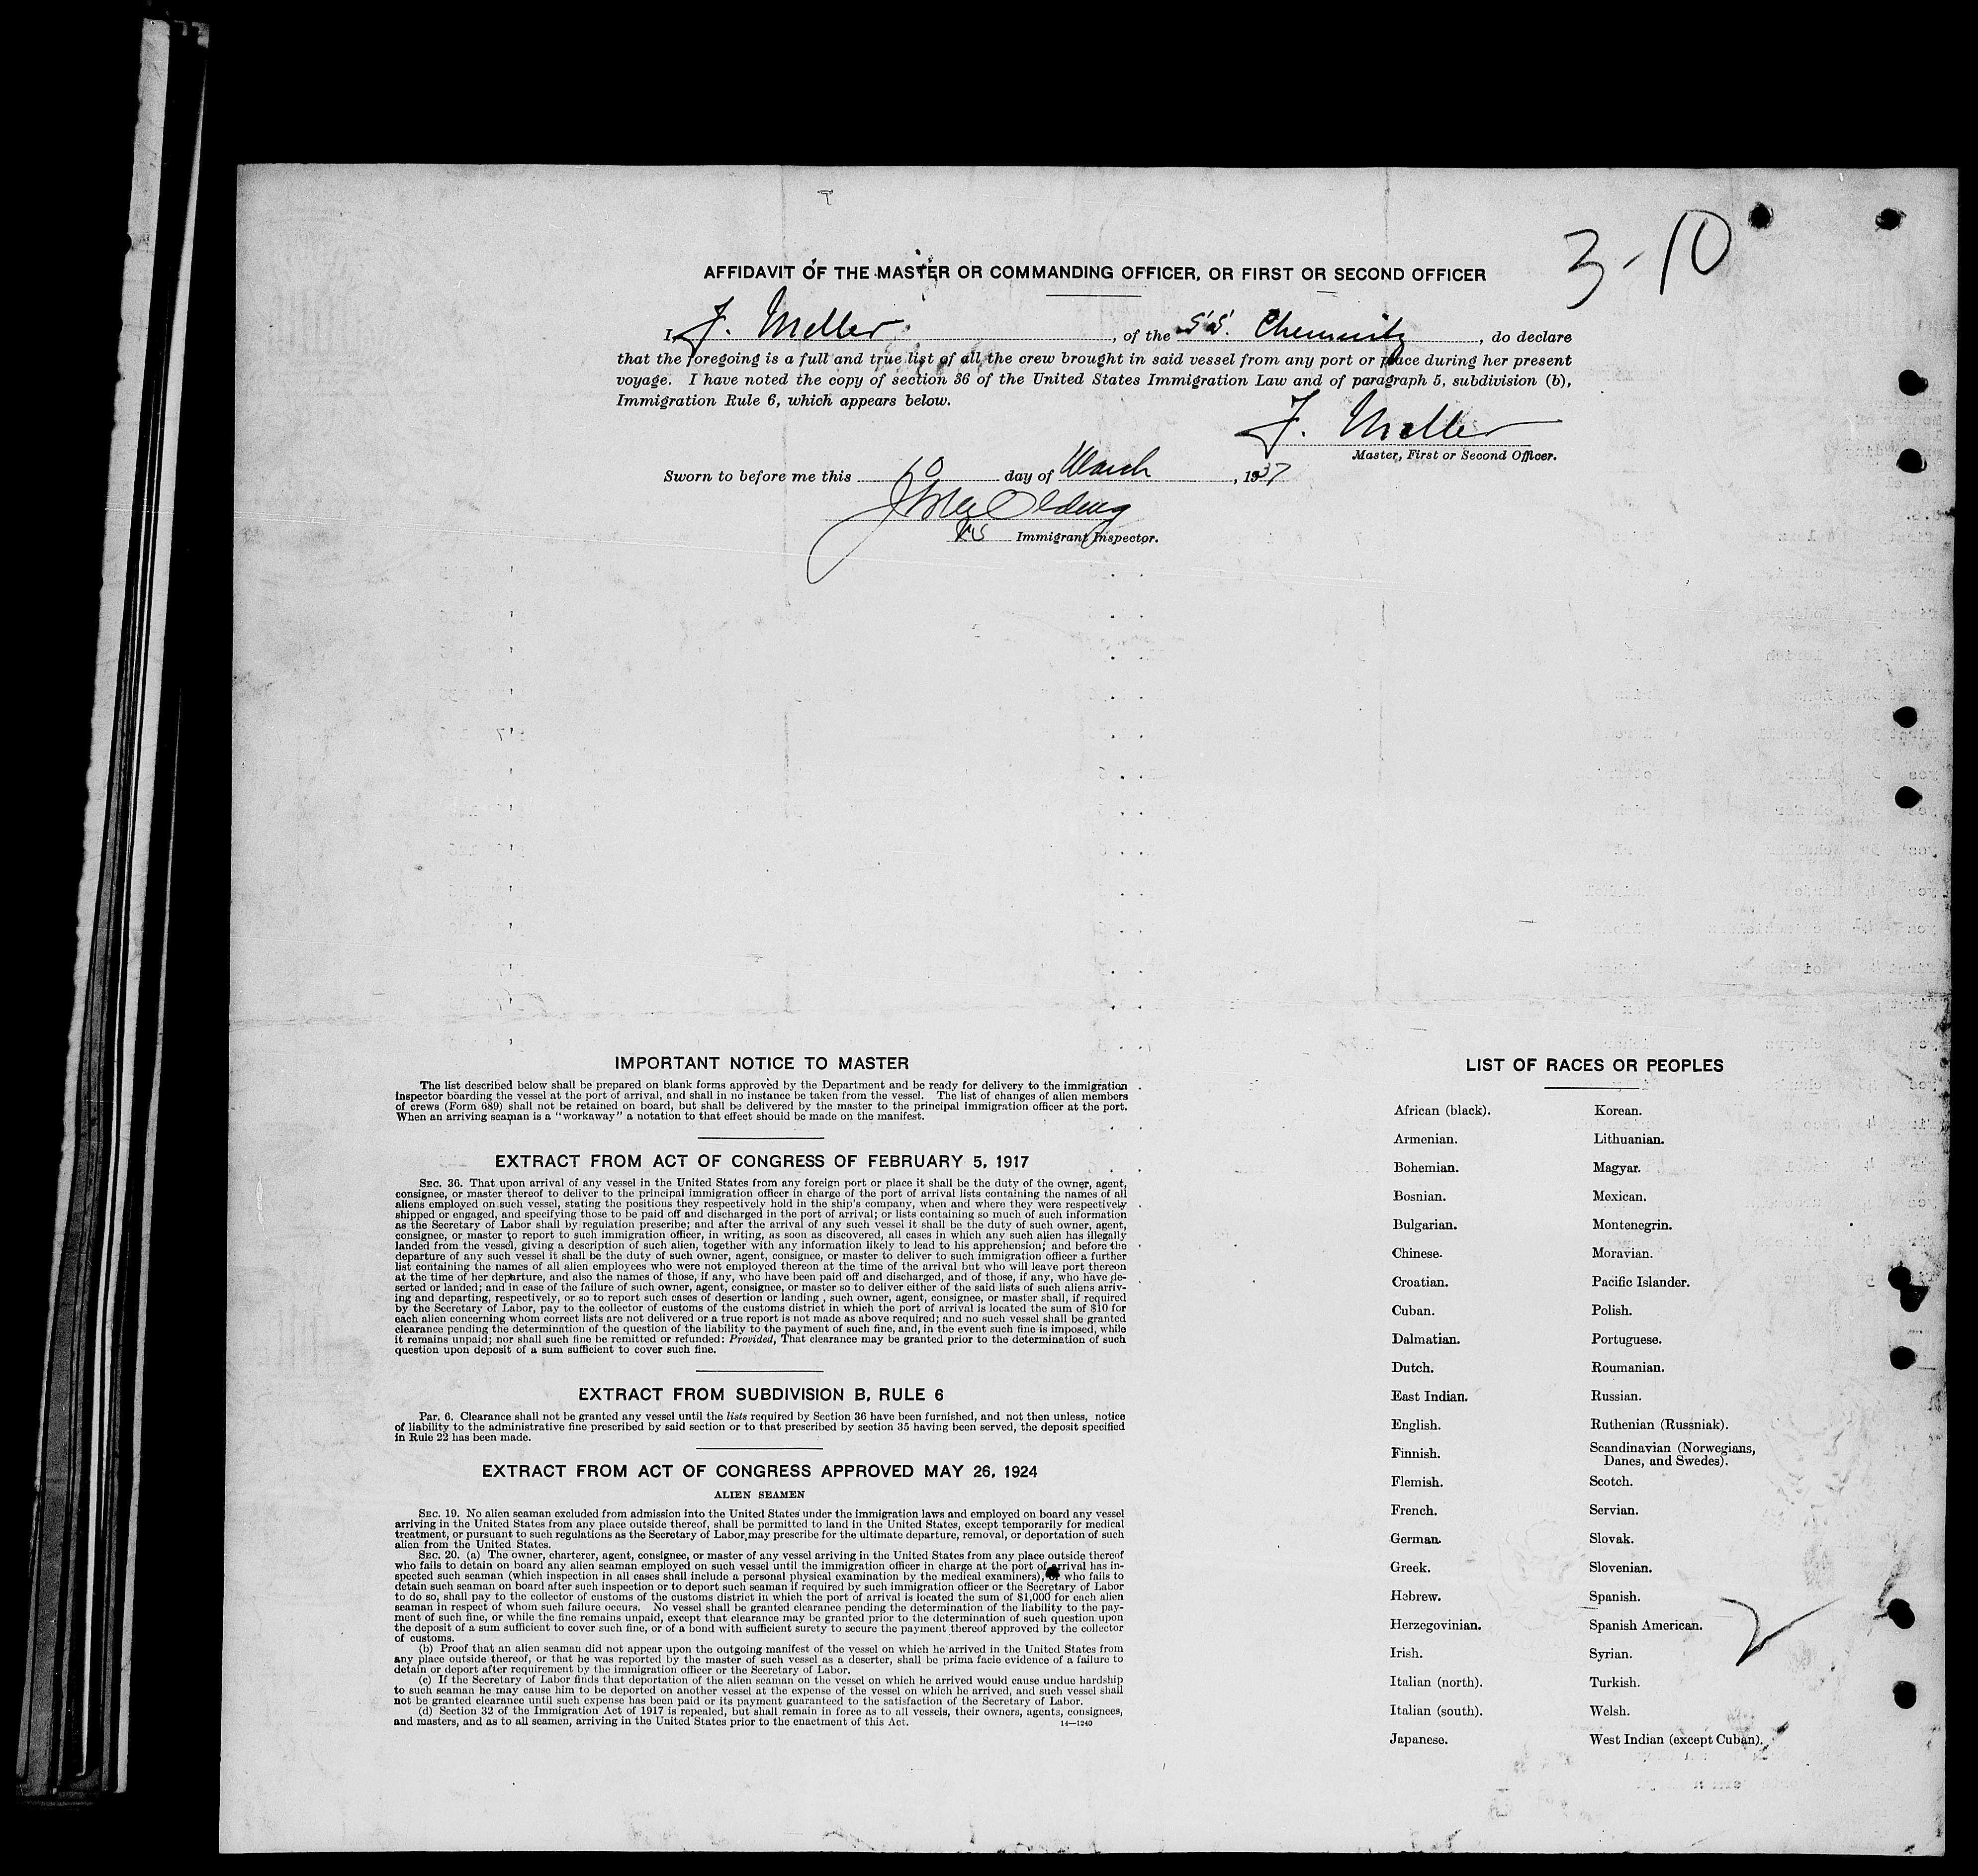 3-10
AFFIDAVIT OF THE MASTER OR COMMANDING OFFICER, OR FIRST OR SECOND OFFICER
I, F. Meller, of the S.S. Chemnitz, do declare
that the foregoing is a full and true list of all the crew brought in said vessel from any port or place during her present
voyage. I have noted the copy of section 36 of the United States Immigration Law and of paragraph 5, subdivision (b),
Immigration Rule 6, which appears below.
F. Meller
Master, First or Second Officer.
Sworn to before me this 10 day of March, 1937
Immigrant Inspector.
IMPORTANT NOTICE TO MASTER
The list described below shall be prepared on blank forms approved by the Department and be ready for delivery to the immigration
inspector boarding the vessel at the port of arrival, and shall in no instance be taken from the vessel. The list of changes of alien members
of crews (Form 689) shall not be retained on board, but shall be delivered by the master to the principal immigration officer at the port.
When an arriving seaman is a "workaway" a notation to that effect should be made on the manifest.
EXTRACT FROM ACT OF CONGRESS OF FEBRUARY 5, 1917
SEC. 36. That upon arrival of any vessel in the United States from any foreign port or place it shall be the duty of the owner, agent,
consignee, or master thereof to deliver to the principal immigration officer in charge of the port of arrival lists containing the names of all
aliens employed on such vessel, stating the positions they respectively hold in the ship's company, when and where they were respectively
shipped or engaged, and specifying those to be paid off and discharged in the port of arrival; or lists containing so much of such information
as the Secretary of Labor shall by regulation prescribe; and after the arrival of any such vessel it shall be the duty of such owner, agent,
consignee, or master to report to such immigration officer, in writing, as soon as discovered, all cases in which any such alien has illegally
landed from the vessel, giving a description of such alien, together with any information likely to lead to his apprehension; and before the
departure of any such vessel it shall be the duty of such owner, agent, consignee, or master to deliver to such immigration officer a further
list containing the names of all alien employees who were not employed thereon at the time of the arrival but who will leave port thereon
at the time of her departure, and also the names of those, if any, who have been paid off and discharged, and of those, if any, who have de-
serted or landed; and in case of the failure of such owner, agent, consignee, or master so to deliver either of the said lists of such aliens arriv-
ing and departing, respectively, or so to report such cases of desertion or landing, such owner, agent, consignee, or master shall, if required
by the Secretary of Labor, pay to the collector of customs of the customs district in which the port of arrival is located the sum of $10 for
each alien concerning whom correct lists are not delivered or a true report is not made as above required; and no such vessel shall be granted
clearance pending the determination of the question of the liability to the payment of such fine, and, in the event such fine is imposed, while
it remains unpaid; nor shall such fine be remitted or refunded: Provided, That clearance may be granted prior to the determination of such
question upon deposit of a sum sufficient to cover such fine.
EXTRACT FROM SUBDIVISION B, RULE 6
Par. 6. Clearance shall not be granted any vessel until the lists required by Section 36 have been furnished, and not then unless, notice
of liability to the administrative fine prescribed by said section or to that prescribed by section 35 having been served, the deposit specified
in Rule 22 has been made.
EXTRACT FROM ACT OF CONGRESS APPROVED MAY 26, 1924
ALIEN SEAMEN
SEC. 19. No alien seaman excluded from admission into the United States under the immigration laws and employed on board any vessel
arriving in the United States from any place outside thereof, shall be permitted to land in the United States, except temporarily for medical
treatment, or pursuant to such regulations as the Secretary of Labor may prescribe for the ultimate departure, removal, or deportation of such
alien from the United States.
SEC. 20. (a) The owner, charterer, agent, consignee, or master of any vessel arriving in the United States from any place outside thereof
who fails to detain on board any alien seaman employed on such vessel until the immigration officer in charge at the port of arrival has in-
spected such seaman (which inspection in all cases shall include a personal physical examination by the medical examiners), or who fails to
detain such seaman on board after such inspection or to deport such seaman if required by such immigration officer or the Secretary of Labor
to do so, shall pay to the collector of customs of the customs district in which the port of arrival is located the sum of $1,000 for each alien
seaman in respect of whom such failure occurs. No vessel shall be granted clearance pending the determination of the liability to the pay-
ment of such fine, or while the fine remains unpaid, except that clearance may be granted prior to the determination of such question upon
the deposit of a sum sufficient to cover such fine, or of a bond with sufficient surety to secure the payment thereof approved by the collector
of customs.
(b) Proof that an alien seaman did not appear upon the outgoing manifest of the vessel on which he arrived in the United States from
any place outside thereof, or that he was reported by the master of such vessel as a deserter, shall be prima facie evidence of a failure to
detain or deport after requirement by the immigration officer or the Secretary of Labor.
(c) If the Secretary of Labor finds that deportation of the alien seaman on the vessel on which he arrived would cause undue hardship
to such seaman he may cause him to be deported on another vessel at the expense of the vessel on which he arrived, and such vessel shall
not be granted clearance until such expense has been paid or its payment guaranteed to the satisfaction of the Secretary of Labor.
(d) Section 32 of the Immigration Act of 1917 is repealed, but shall remain in force as to all vessels, their owners, agents, consignees,
and masters, and as to all seamen, arriving in the United States prior to the enactment of this Act.
14—1240
LIST OF RACES OR PEOPLES
African (black).
Armenian.
Bohemian.
Bosnian.
Bulgarian.
Chinese.
Croatian.
Cuban.
Dalmatian.
Dutch.
East Indian.
English.
Finnish.
Flemish.
French.
German.
Greek.
Hebrew.
Herzegovinian.
Irish.
Italian (north).
Italian (south).
Japanese.
Korean.
Lithuanian.
Magyar.
Mexican.
Montenegrin.
Moravian.
Pacific Islander.
Polish.
Portuguese.
Roumanian.
Russian.
Ruthenian (Russniak).
Scandinavian (Norwegians,
Danes, and Swedes).
Scotch.
Servian.
Slovak.
Slovenian.
Spanish.
Spanish American.
Syrian.
Turkish.
Welsh.
West Indian (except Cuban).
2